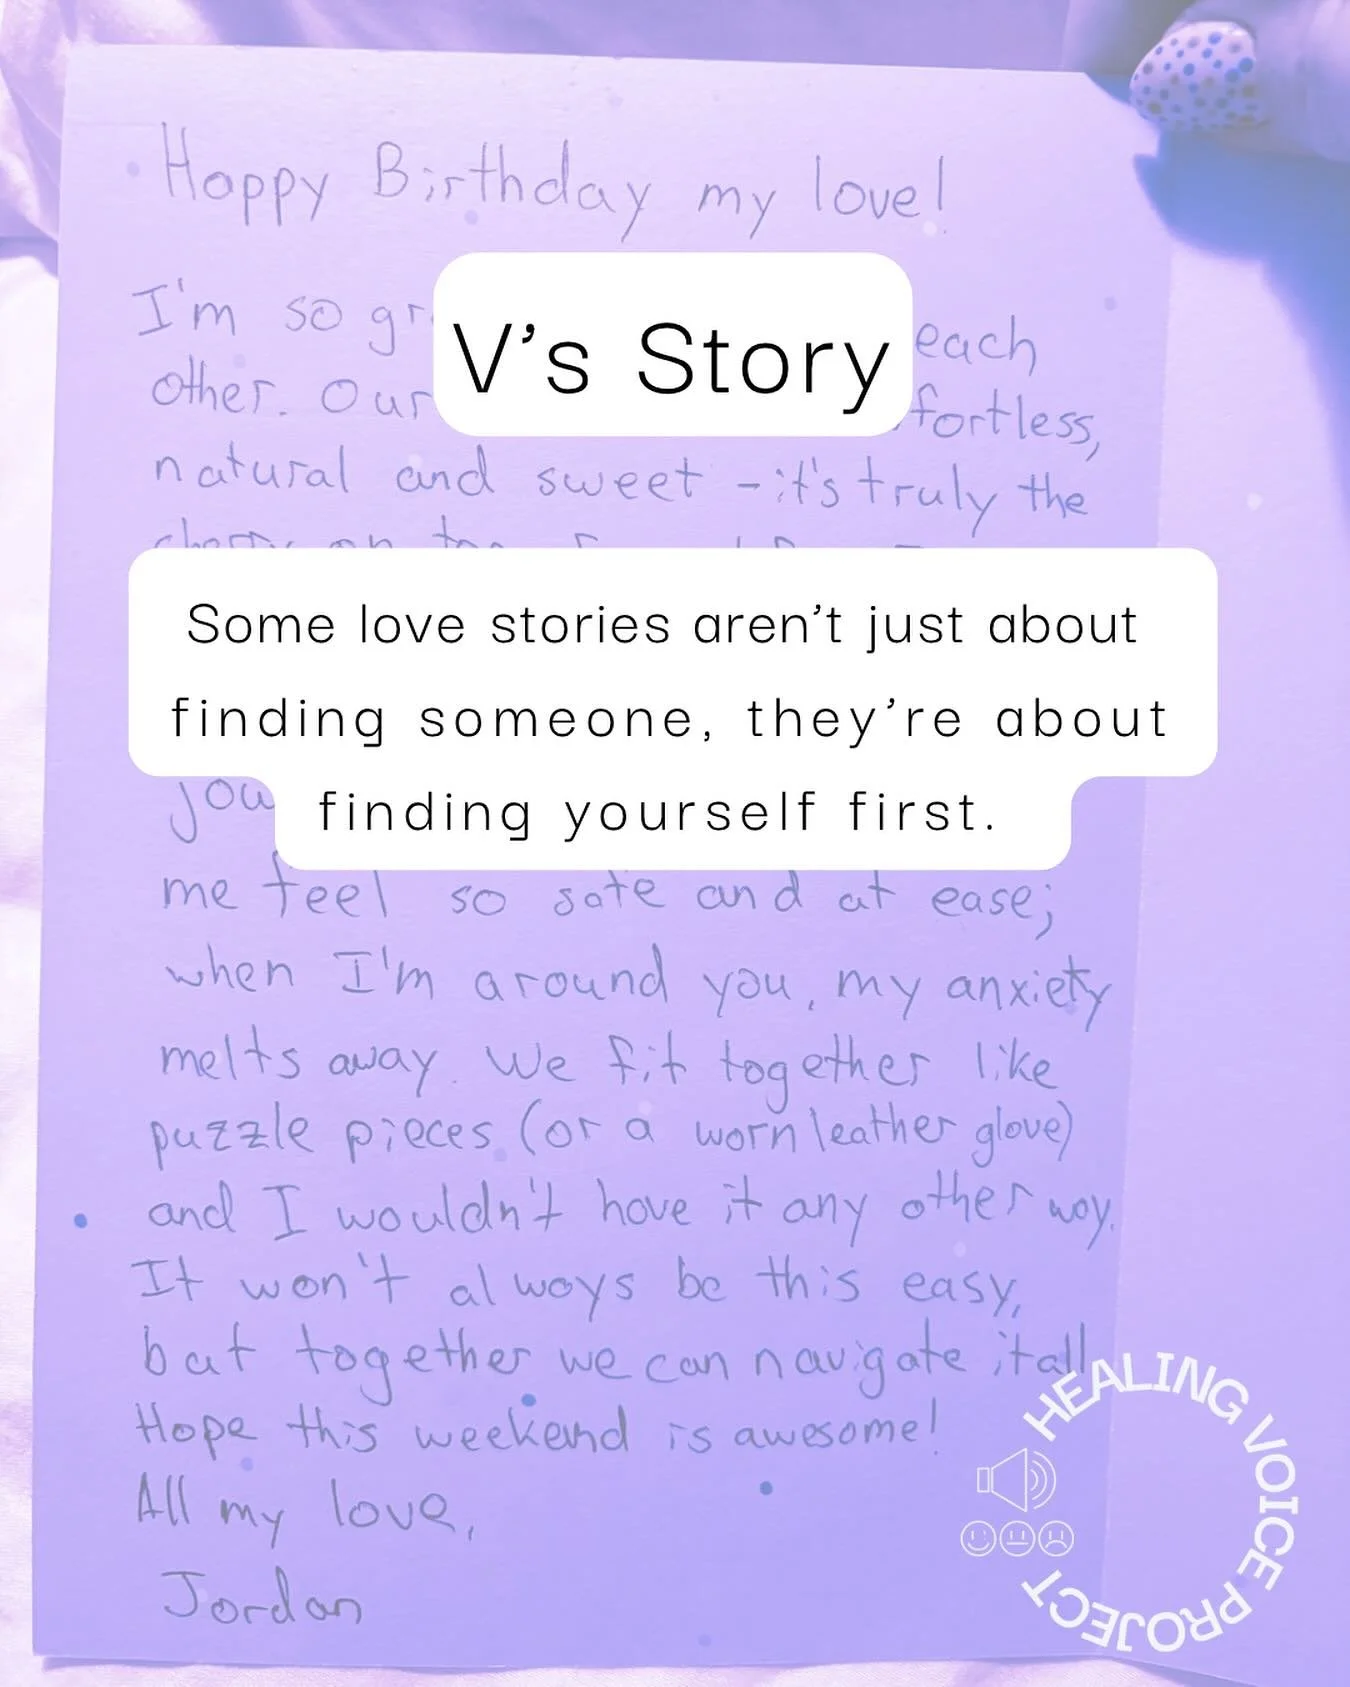 Happy Birthday my love!
I'm so gr
each
V's Story
other. Our
fortless,
natural and sweet - it's truly the
Some love stories aren't just about
finding someone, they're about
finding yourself first.
me feel so safe and at ease;
when I'm around you, my anxiety
melts away. We fit together like
puzzle pieces (or a worn leather glove)
and I wouldn't have it any other way.
It won't always be this easy,
but together we can navigate it all
Hope this weekend is awesome!
All my love,
Jordan
HEALING VOICE PROJECT